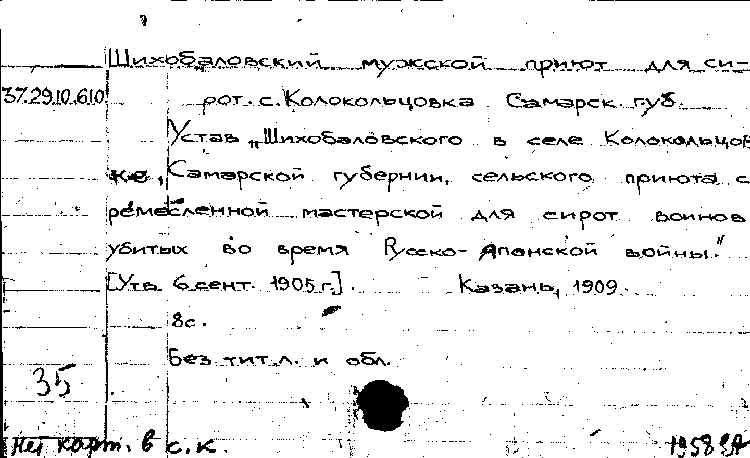 Шихобаловский мужской приют для си-
37.29.10.610 рот. с. Колокольцовка Самарск. губ.
Устав „Шихобаловского в селе Колокольцов
ке, Самарской губернии, сельского приюта с
ремесленной мастерской для сирот воинов
убитых во время Русско-Японской войны."
[Утв. 6 сент. 1905 г.]. Казань, 1909.
8с.
Без тит.л. и обл.
35
Нет карт. в с.к. 1958